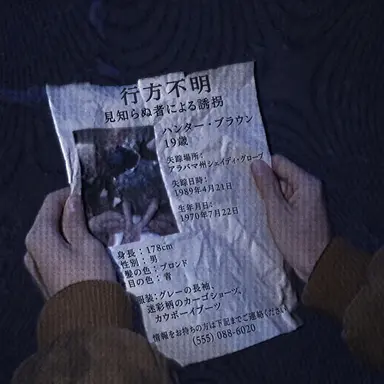 行方不明
見知らぬ者による誘拐
ハンター・ブラウン
19歳
失踪場所:
アラバマ州シェイディ・グローブ
失踪日時:
1989年4月21日
生年月日:
1970年7月22日
身長：178cm
性別：男
髪の色：ブロンド
目の色：青
服装：グレーの長袖、
迷彩柄のカーゴショーツ、
カウボーイブーツ
情報をお持ちの方は下記までご連絡ください
(555) 088-6020